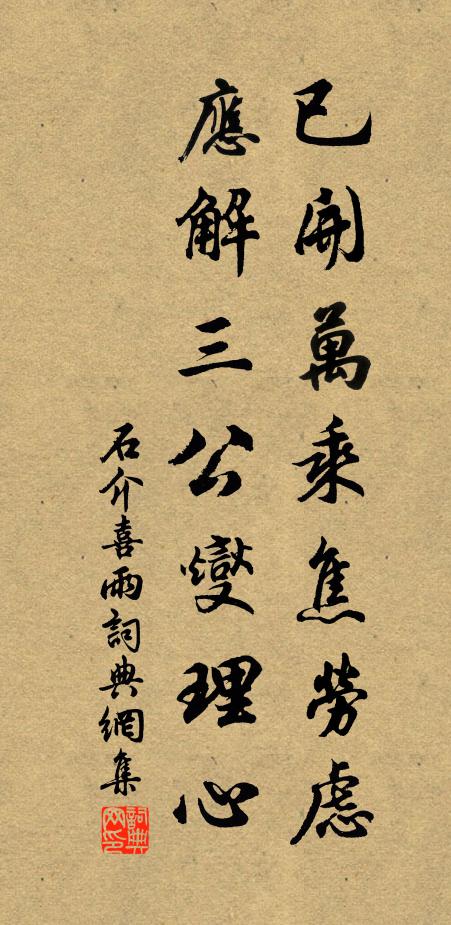 已開萬乘焦勞慮
應解三公燮理心
石介喜雨詞典網集
詞典网印